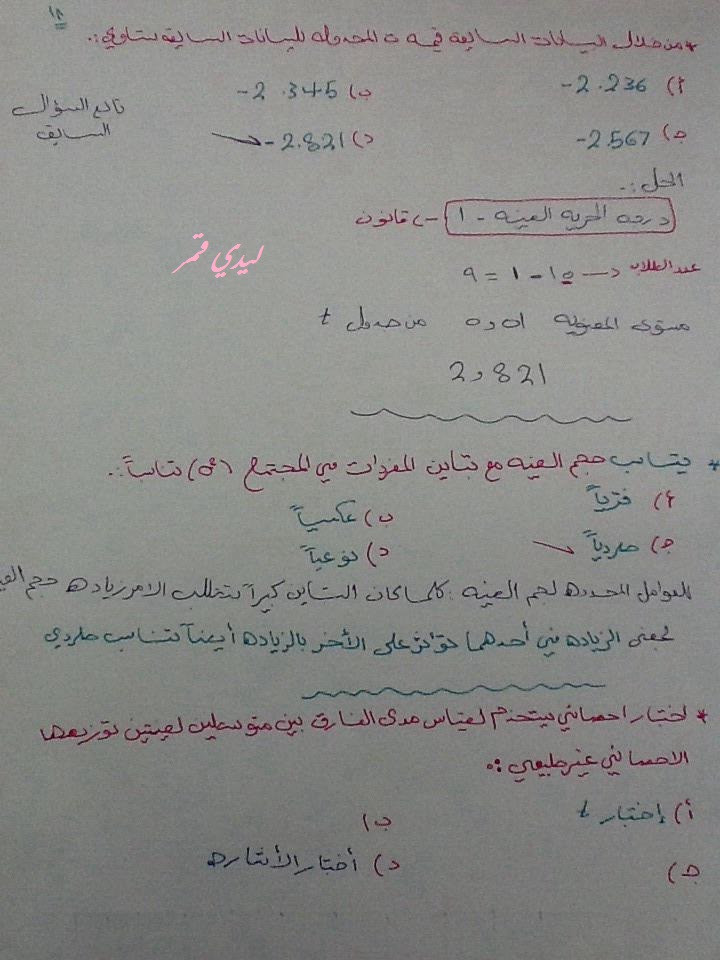 ١٨
* من خلال البيانات السابقة قيمة ت المجدولة للبيانات السابقة تساوي :.
أ) 2.236- ب) 2.345-
ج) 2.567- د) 2.821-
تابع السؤال
السابق
الحل :.
درجة الحرية العينه - ١ -> قانون
عدد الطلاب <- ١٠ - ١ = ٩
مستوى المعنوية ٠,٠١ من جدول t
2,821
* يتناسب حجم العينه مع تباين المفردات في المجتمع تناسباً :.
أ) فترياً ب) عكسياً
ج) طردياً د) نوعياً
العوامل المحدده لحجم العينه : كلما كان التباين كبيراً يتطلب الامر زياده حجم
بمعنى الزياده في أحدهما تؤثر على الأخر بالزياده أيضاً تتناسب طردي
* اختبار احصائي يستخدم لقياس مدى الفارق بين متوسطين لعينتين توزيعهما
الاحصائي غير طبيعي :.
أ) إختبار t ب)
ج) د) أختبار الأشاره
ليدي قمر